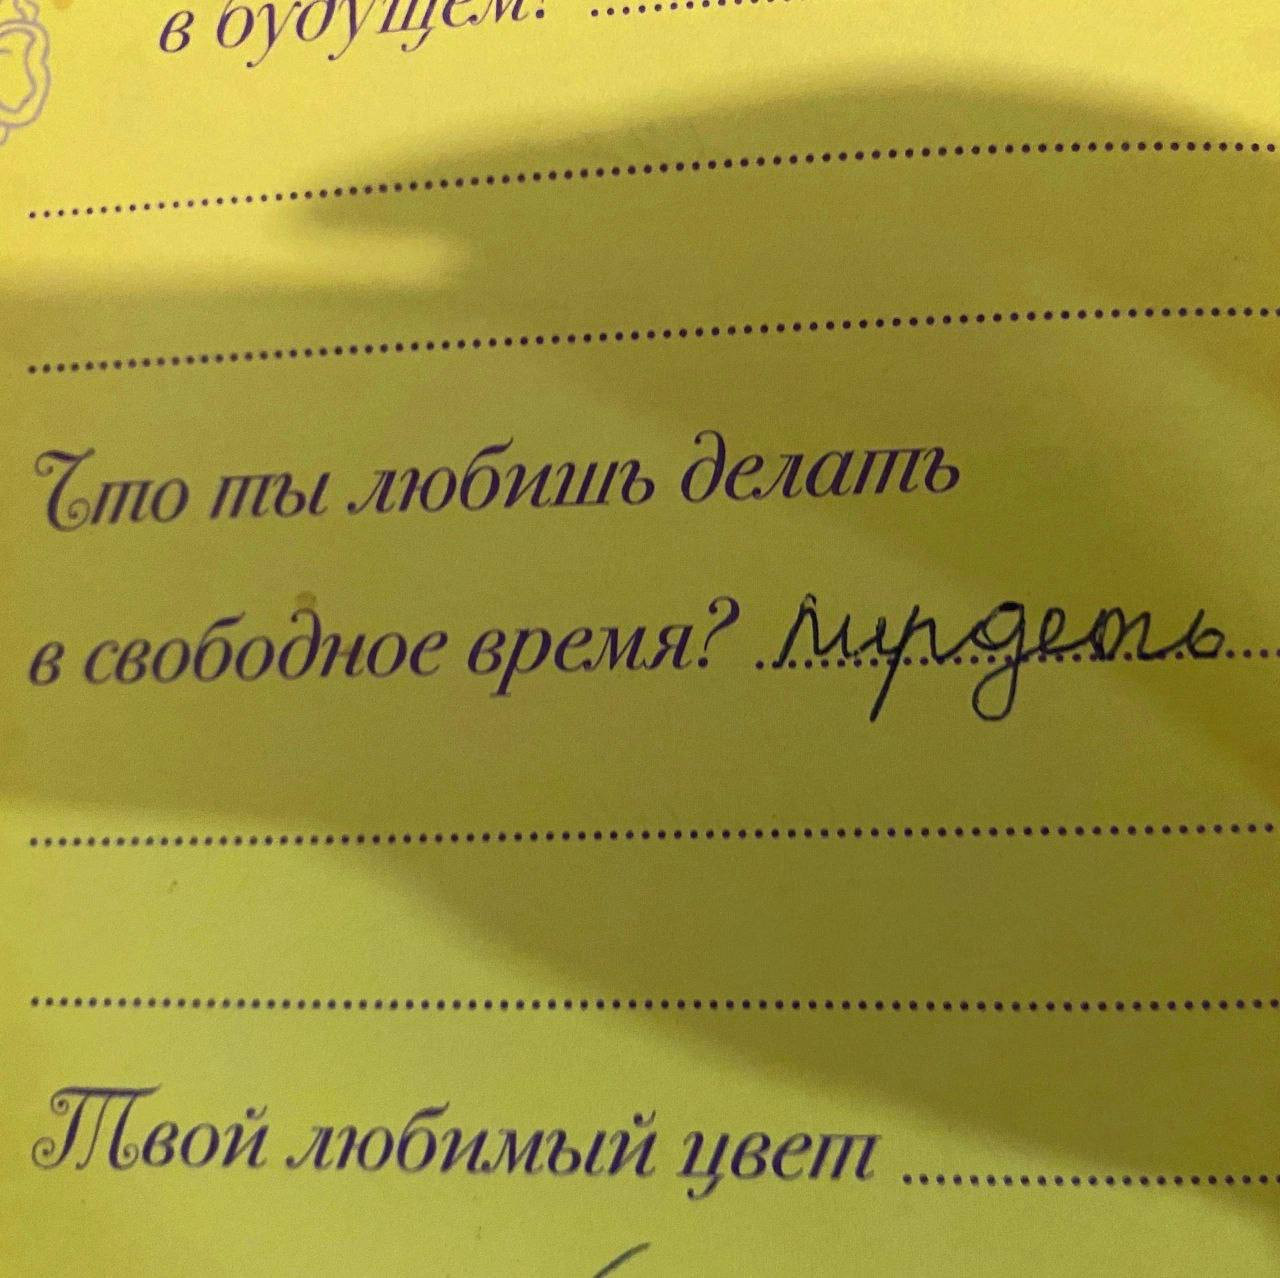 в будущем?
Что ты любишь делать
в свободное время? пирдеть
Твой любимый цвет